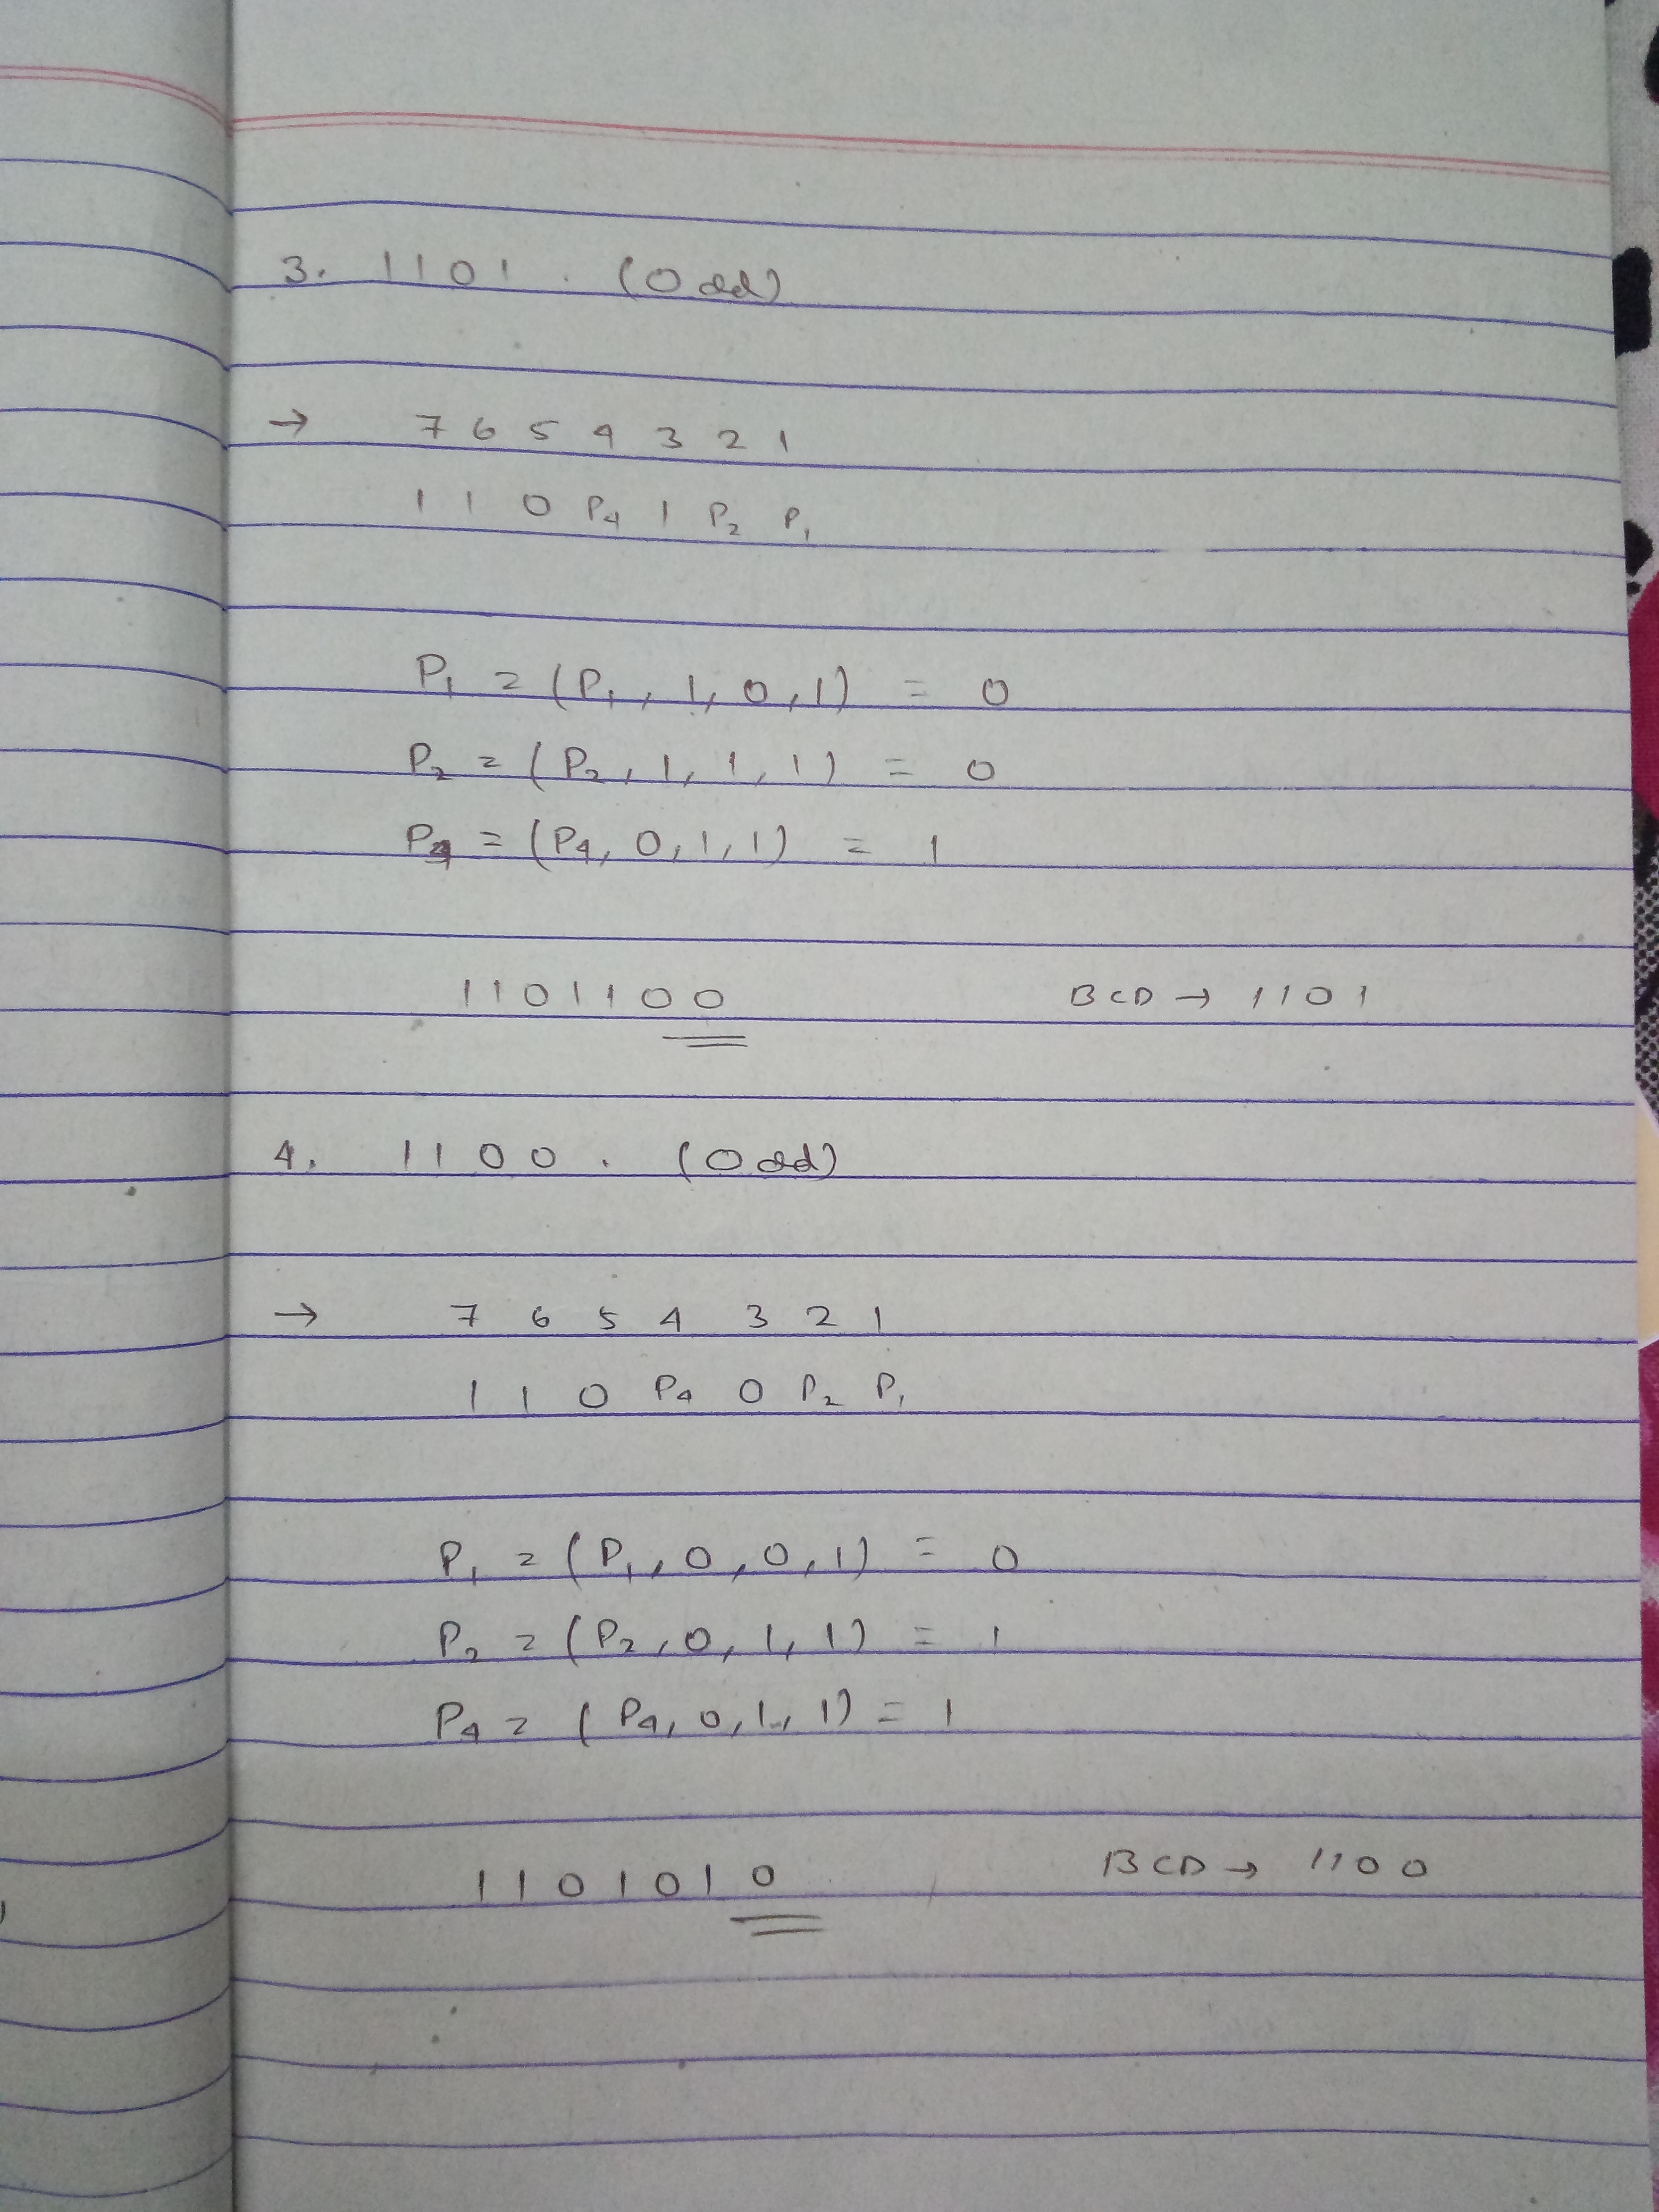 3. 1101. (Odd)
→ 7 6 5 4 3 2 1
1 1 0 P4 1 P2 P1
P1 = (P1, 1, 0, 1) = 0
P2 = (P2, 1, 1, 1) = 0
P4 = (P4, 0, 1, 1) = 1
1101100 BCD → 1101
4. 1100. (Odd)
→ 7 6 5 4 3 2 1
1 1 0 P4 0 P2 P1
P1 = (P1, 0, 0, 1) = 0
P2 = (P2, 0, 1, 1) = 1
P4 = (P4, 0, 1, 1) = 1
1101010 BCD → 1100